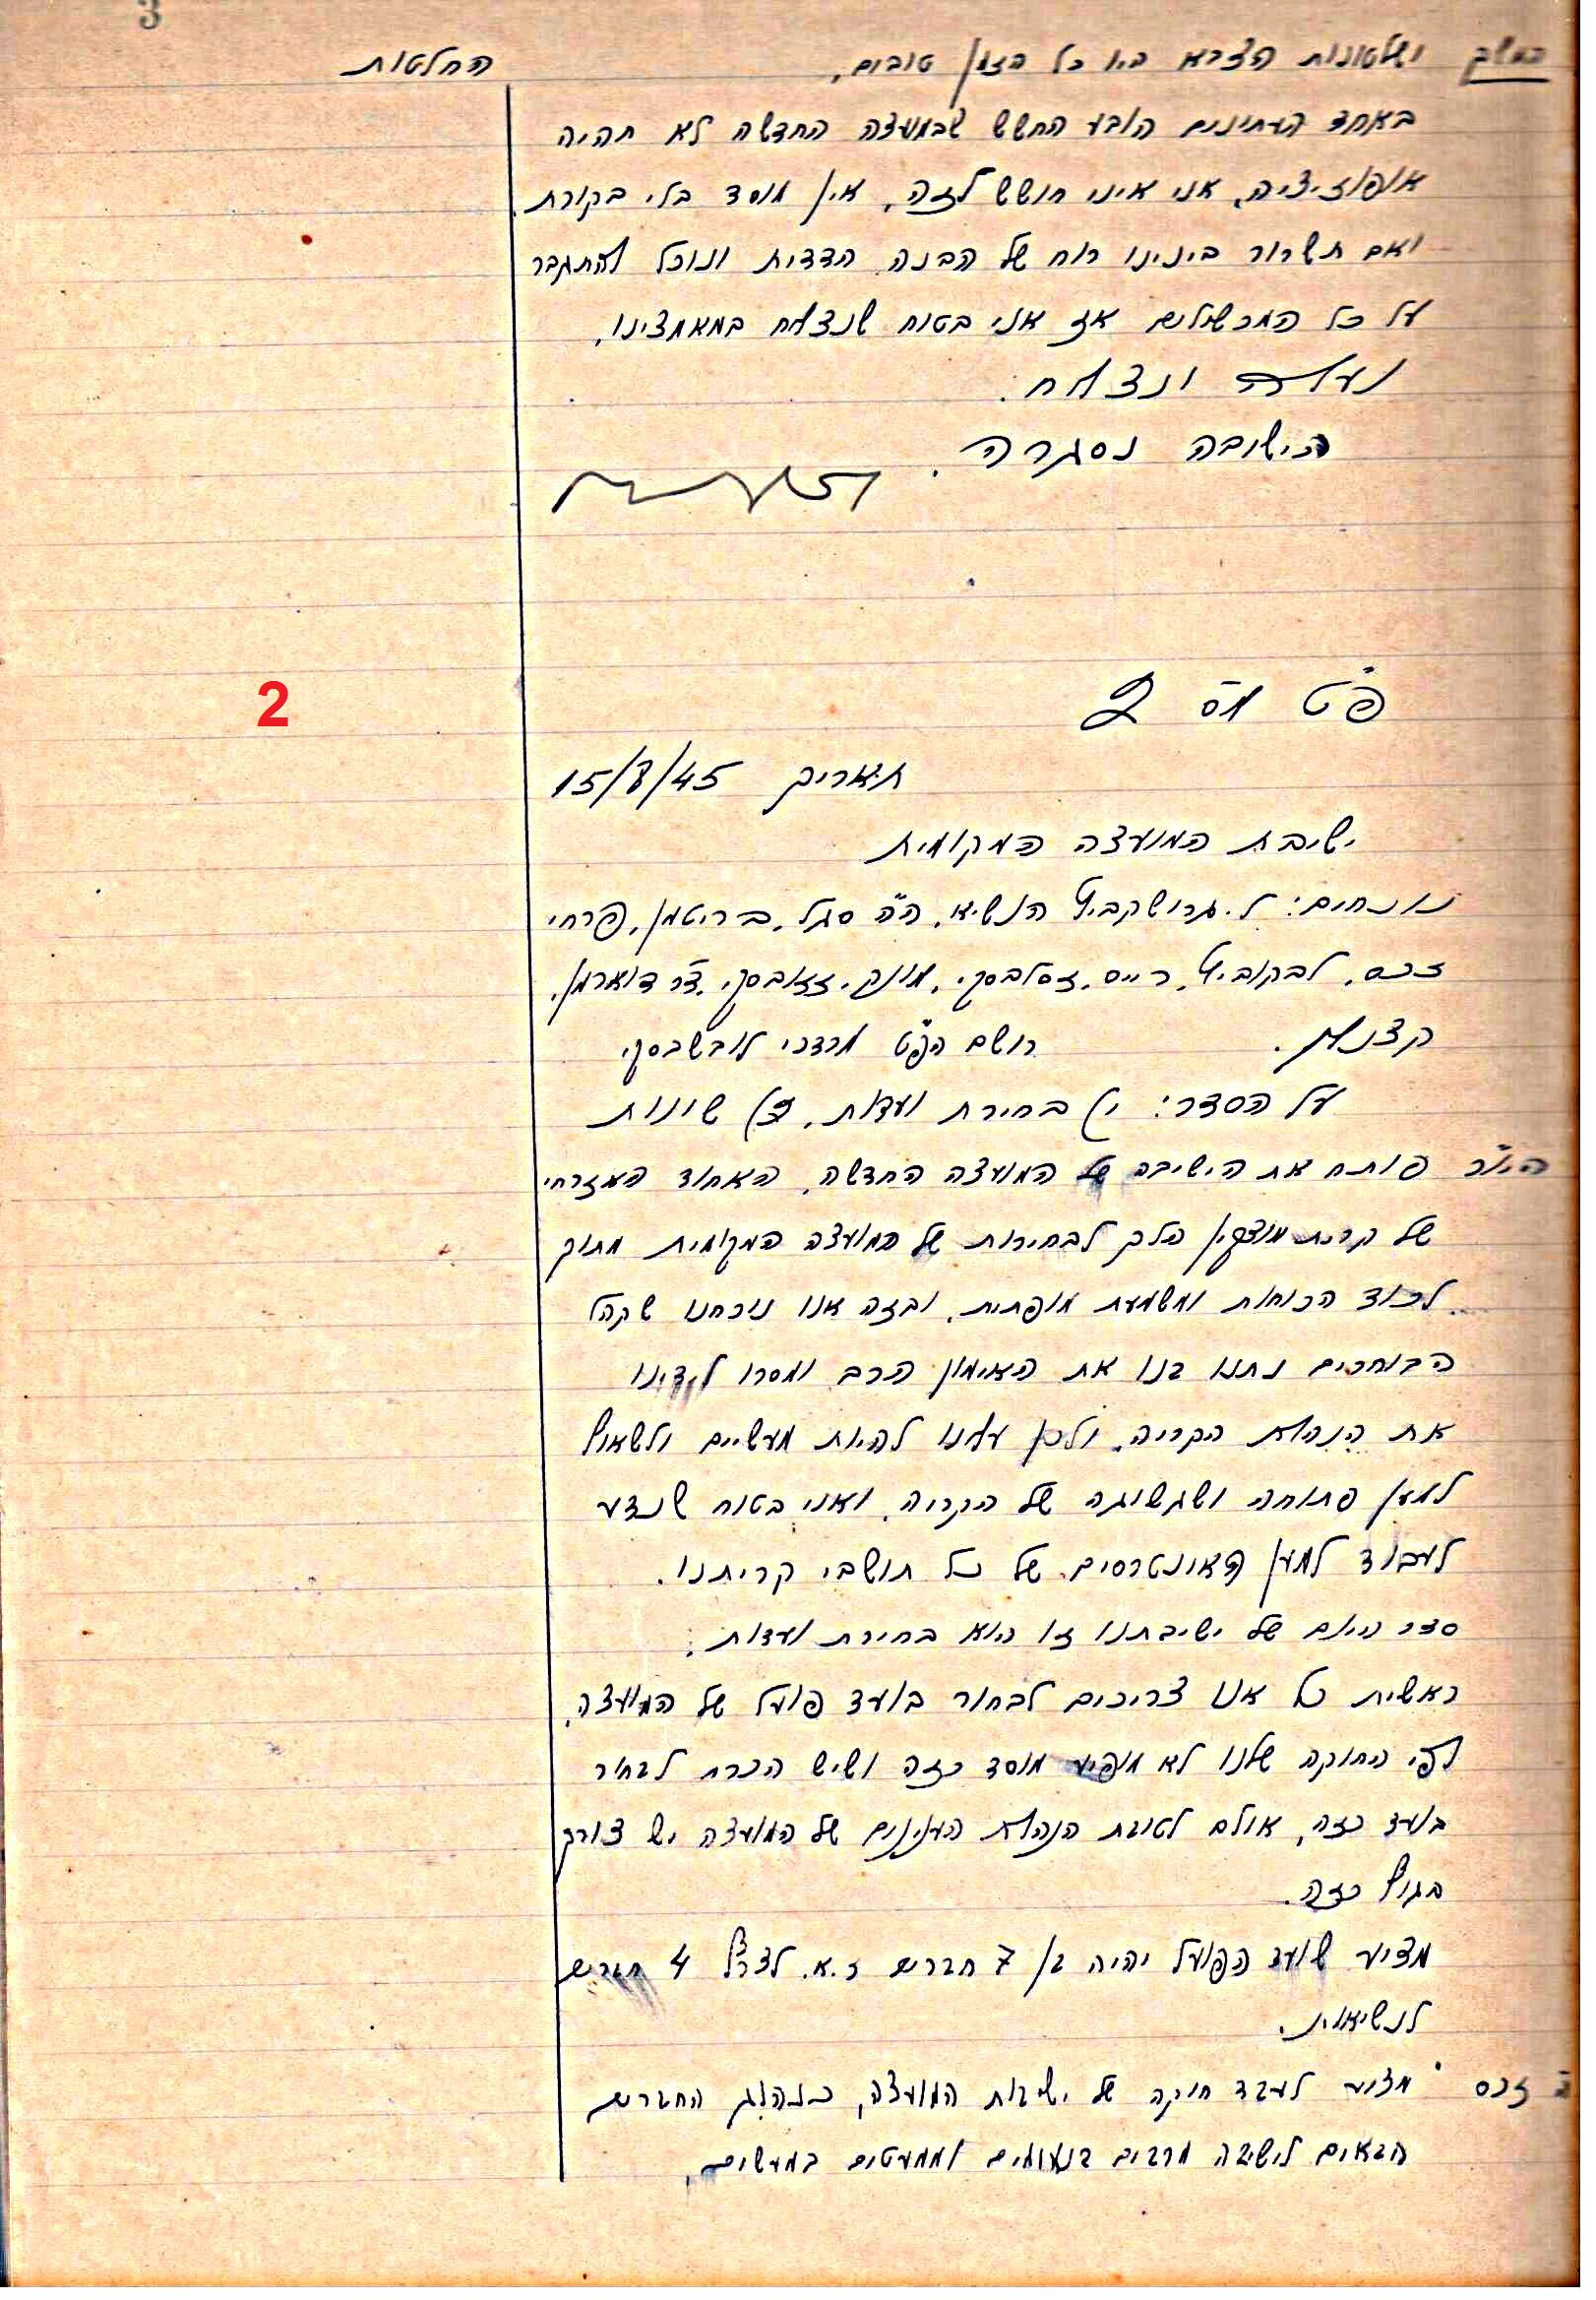 3
המשך ושלטונות הצבא היו כל הזמן טובים. החלטות
באחד העתונים הובע החשש שבמועצה החדשה לא תהיה
אופוזיציה, אני אינני חושש לזה, אין מוסד בלי בקורת.
ואם תשרור בינינו רוח של הבנה הדדית ונוכל להתגבר
על כל המכשולים אז אני בטוח שנצליח במאמצינו.
נעלה ונצליח.
הישיבה נסגרה.
פ"ט מס 2
2
תאריך 15/8/45
ישיבת המועצה המקומית
נוכחים: ל. גרושקביץ הנשיא, ה"ה סגל, ברויטמן, פרחי
זכס, לבקוביץ, רייס, זסלבסקי, מונק, ד"ר דוארמן,
קצנלסון. רושם הפ"ט מרדכי לובשבסקי
על הסדר: 1) בחירת ועדות, 2) שונות
היו"ר פותח את הישיבה של המועצה החדשה. האחוד האזרחי
של קרית מוצקין הלך לבחירות של המועצה המקומית מתוך
לכוד הכוחות ומשמעת מופתית, ובזה אנו נוכחנו שקהל
הבוחרים נתנו בנו את האימון הרב ומסרו לידינו
את הנהלת הקריה, ולכן עלינו להיות מעשיים ולשאוף
למען פתוחה ושגשוגה של הקריה, ואני בטוח שנדע
לעבוד למען האינטרסים של כל תושבי קריתנו.
סדר היום של ישיבתנו זו הוא בחירת ועדות:
ראשית כל אנו צריכים לבחור בועד פועל של המועצה,
לפי החוקה שלנו לא מופיע מוסד כזה ושיש הכרח לבחור
בועד כזה, אולם לטובת הנהלת הענינים של המועצה יש צורך
בגוף כזה.
מציע שועד הפועל יהיה בן 7 חברים ז.א. לצרף 4 חברים
לנשיאות.
ה' זכס מציע לעבד חוקה של ישיבות המועצה, החברים
הבאים לישיבה מרבים בנאומים וממעטים במעשים,